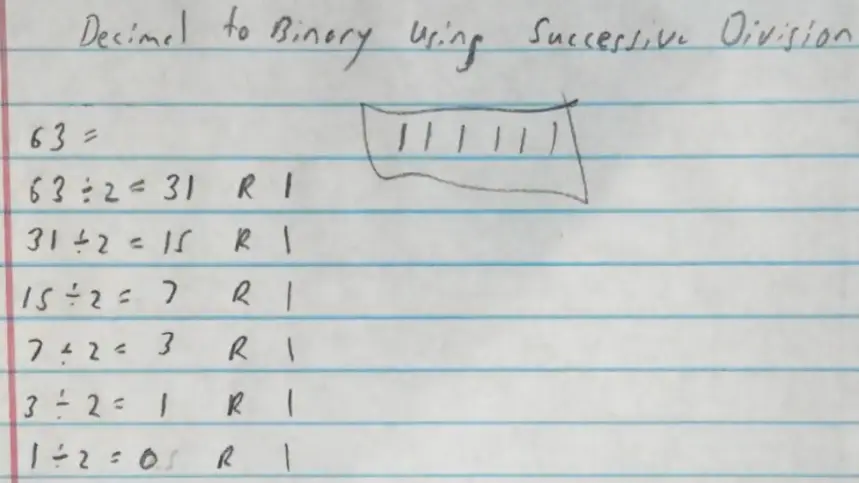 Decimal to Binary Using Successive Division
63 = 111111
63 ÷ 2 = 31 R 1
31 ÷ 2 = 15 R 1
15 ÷ 2 = 7 R 1
7 ÷ 2 = 3 R 1
3 ÷ 2 = 1 R 1
1 ÷ 2 = 0 R 1